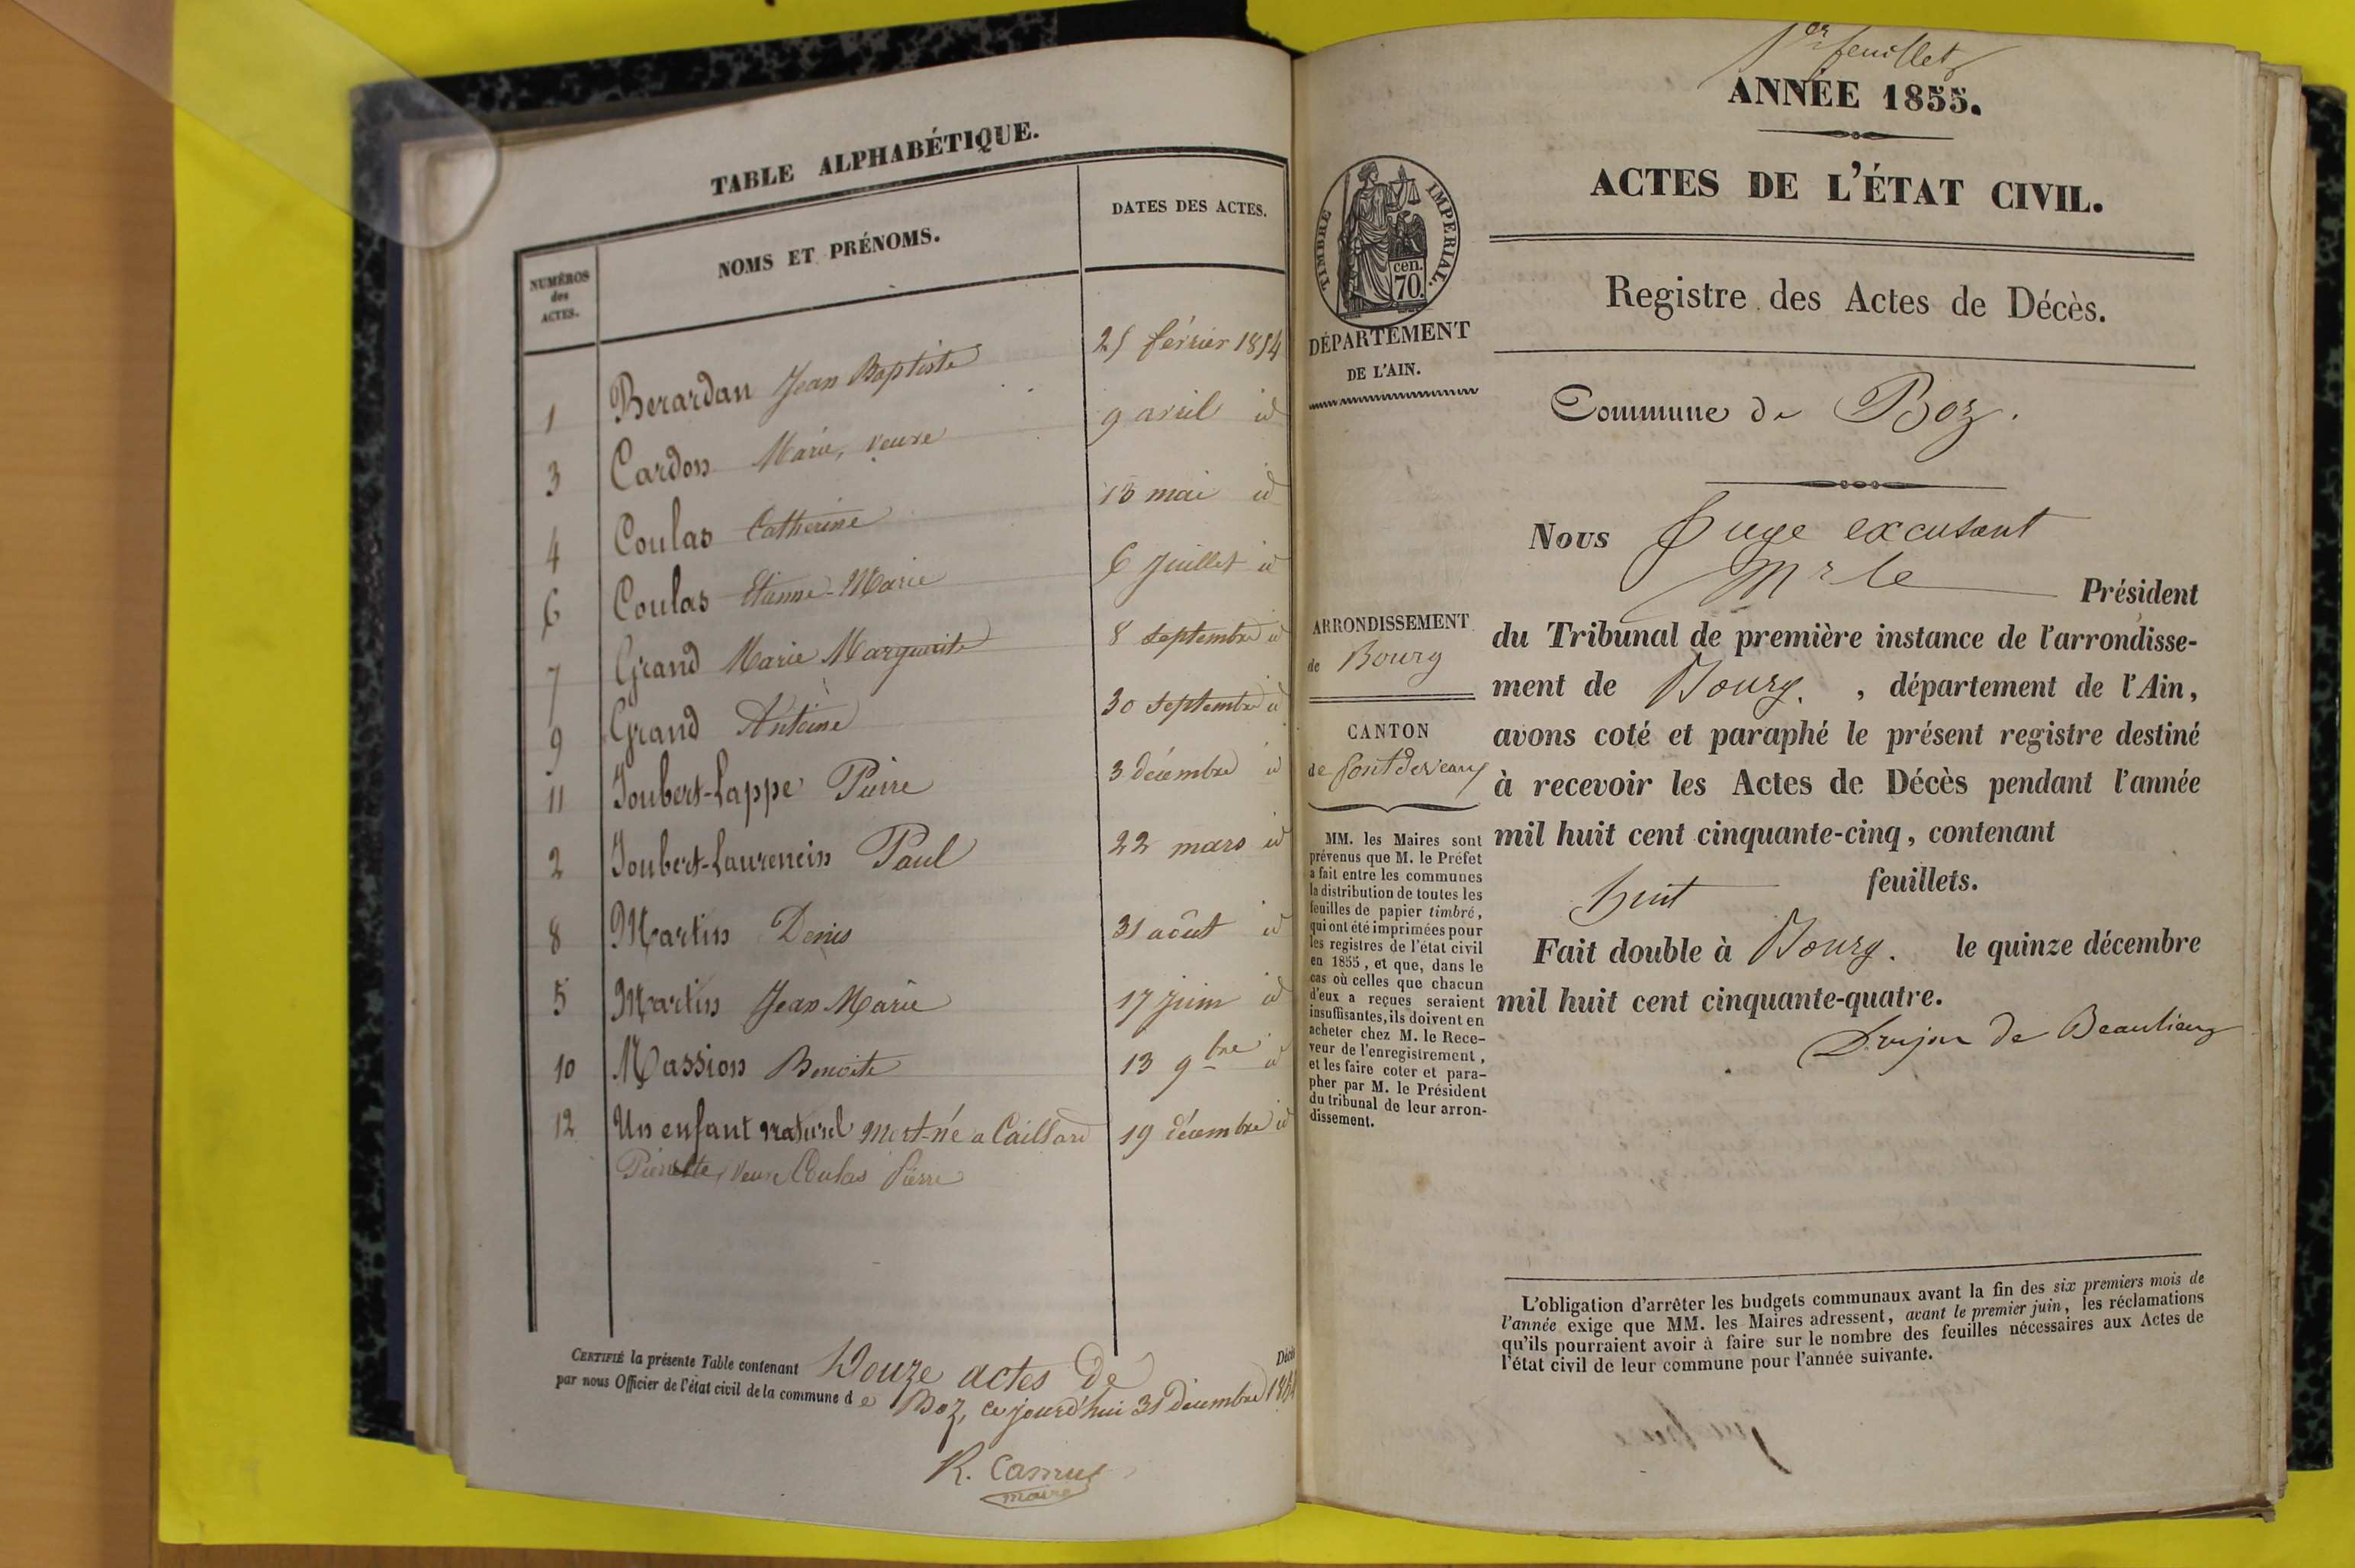 TABLE ALPHABÉTIQUE.
NUMÉROS
des
ACTES.
NOMS ET PRÉNOMS.
DATES DES ACTES.
1 Berardan Jean Baptiste 25 février 1854
3 Cardon Marie, veuve 9 avril id
4 Coulas Catherine 13 mai id
6 Coulas Etienne-Marie 6 Juillet id
7 Grand Marie Marguerite 8 septembre id
9 Grand Antoine 30 septembre id
11 Joubert-Lappe Pierre 3 décembre id
2 Joubert-Laurencin Paul 22 mars id
8 Martin Denis 31 août id
5 Martin Jean Marie 17 juin id
10 Massion Benoite 13 9bre id
12 Un enfant naturel mort-né a Caillard 19 décembre id
Pierrette, veuve Coulas Pierre
CERTIFIÉ la présente Table contenant Douze actes De Décès
par nous Officier de l'état civil de la commune de Boz, ce jourd'hui 31 Décembre 1854
R. Camus
maire
1er feuillet
ANNÉE 1855.
ACTES DE L'ÉTAT CIVIL.
Registre des Actes de Décès.
TIMBRE IMPERIAL.
cen.
70.
DÉPARTEMENT
DE L'AIN.
Commune de Boz.
Nous Juge excusant
Mr le Président
ARRONDISSEMENT
de Bourg
du Tribunal de première instance de l'arrondisse-
ment de Bourg. , département de l'Ain,
avons coté et paraphé le présent registre destiné
à recevoir les Actes de Décès pendant l'année
mil huit cent cinquante-cinq, contenant
huit feuillets.
Fait double à Bourg. le quinze décembre
mil huit cent cinquante-quatre.
de Beaulieu
CANTON
de Pontdevaux
MM. les Maires sont
prévenus que M. le Préfet
a fait entre les communes
la distribution de toutes les
feuilles de papier timbré,
qui ont été imprimées pour
les registres de l'état civil
en 1855, et que, dans le
cas où celles que chacun
d'eux a reçues seraient
insuffisantes, ils doivent en
acheter chez M. le Rece-
veur de l'enregistrement,
et les faire coter et para-
pher par M. le Président
du tribunal de leur arron-
dissement.
L'obligation d'arrêter les budgets communaux avant la fin des six premiers mois de
l'année exige que MM. les Maires adressent, avant le premier juin, les réclamations
qu'ils pourraient avoir à faire sur le nombre des feuilles nécessaires aux Actes de
l'état civil de leur commune pour l'année suivante.